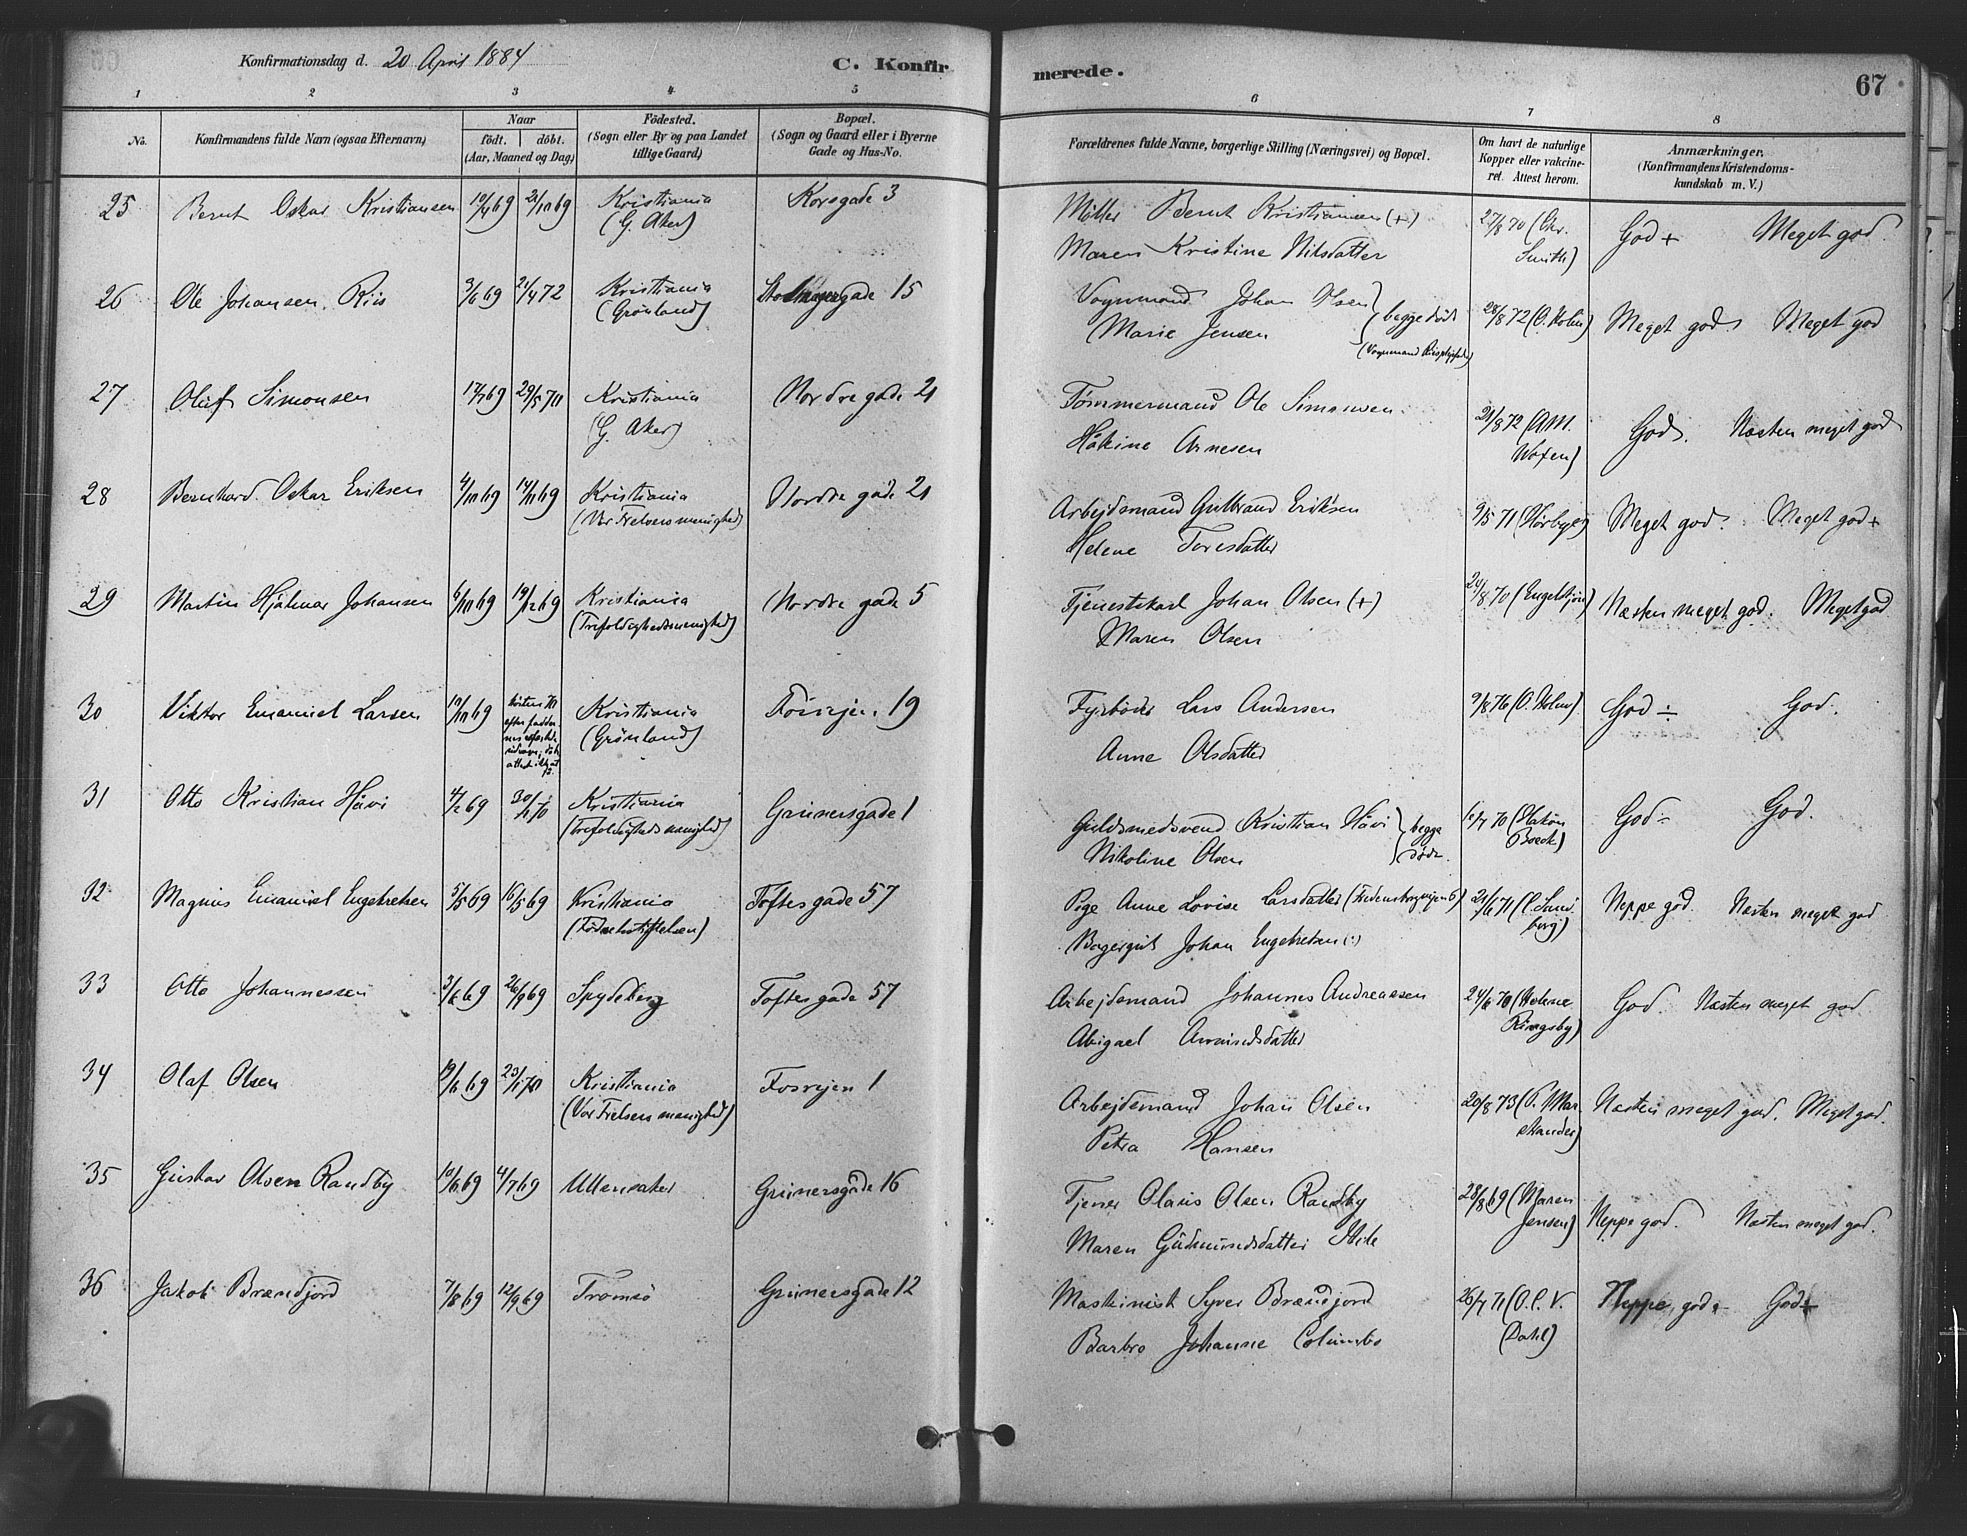 Konfirmationsdag d. 20 April 1884
C. Konfirmerede.
67
1 2 3 4 5 6 7 8
No.
Konfirmandens fulde Navn (ogsaa Efternavn)
Naar
födt. döbt.
(Aar, Maaned og Dag)
Födested.
(Sogn eller By og paa Landet
tillige Gaard)
Bopæl.
(Sogn og Gaard eller i Byerne
Gade og Hus-No.
Forældrenes fulde Navne, borgerlige Stilling (Næringsvei) og Bopæl.
Om havt de naturlige
Kopper eller vakcine-
ret. Attest herom.
Anmærkninger.
(Konfirmandens Kristendoms-
kundskab m. V.)
25 Bernt Oskar Kristiansen Kristiania Korsgade 3
(G. Aker)
Möller Bernt Kristiansen (+) 27/8 70 (Chr. God + Meget god.
Maren Kristine Nilsdatter Smith)
26 Ole Johansen Riis 3/6 69 21/4 72 Kristiania gade 15
(Grönland)
Vognmand Johan Olsen begge död 28/8 72 (O. Holm) Meget god Meget god
Marie Jensen
27 Oluf Simonsen 29/5 70 Kristiania Nordre gade 21
(G. Aker)
Tömmermand Ole Simonsen 21/8 72 (AM. God. Næsten meget god
Håkine Arnesen
28 Bernhard Oskar Eriksen 4/10 69 14/11 69 Kristiania Nordre gade 21
(Vor Frelsers menighed)
Arbejdsmand Gulbrand Eriksen 9/5 71 (Hörbye) Meget god. Meget god +
Helene Toresdatter
29 Martin Hjalmar Johansen 6/10 69 19/12 69 Kristiania Nordre gade 5
(Trefoldighedsmenighed)
Tjenestekarl Johan Olsen (+) Næsten meget god. Meget god
Maren Olsen
30 Viktor Emanuel Larsen Kristiania Fosvejen 19
(Grönland)
Fyrböder Lars Andersen 9/8 76 (O. Holm) God ÷ God.
Anne Olsdatter
31 Otto Kristian Hävi 4/12 69 30/1 70 Kristiania Grünersgade 1
(Trefoldigheds menighed)
Guldsmedsvend Kristian Hävi begge God ÷ God.
Nikoline Olsen döde.
32 Magnus Emanuel Engebretsen 5/5 69 16/5 69 Kristiania Toftesgade 57
(Födselsstiftelsen)
Pige Anne Lovise Larsdatter Neppe god. Næsten meget god
Johan Engebretsen
33 Otto Johannessen 3/6 69 26/9 69 Spydeberg Toftesgade 57
Arbejdsmand Johannes Andreassen 24/6 70 (Helene God. Næsten meget god
Abigael Ringsby)
34 Olaf Olsen 19/6 69 23/1 70 Kristiania Fosvejen 1
(Vor Frelsers menighed)
Arbejdsmand Johan Olsen 20/8 73 (P. Mar Næsten meget god. Meget god.
Petra Hansen strander)
35 Gustav Olsen Randby 10/6 69 4/7 69 Ullensaker Grünersgade 16
Tjener Olaus Olsen Randby 28/8 69 (Maren Neppe god. Næsten meget god.
Maren Gudmundsdatter Jensen)
36 Jakob Brændjord 7/8 69 12/9 69 Tromsö Grünersgade 12
Maskinist Syver Brændjord 26/7 71 (O. C. V. Neppe god ÷ God +
Barbro Johanne Columbo (Dahl)